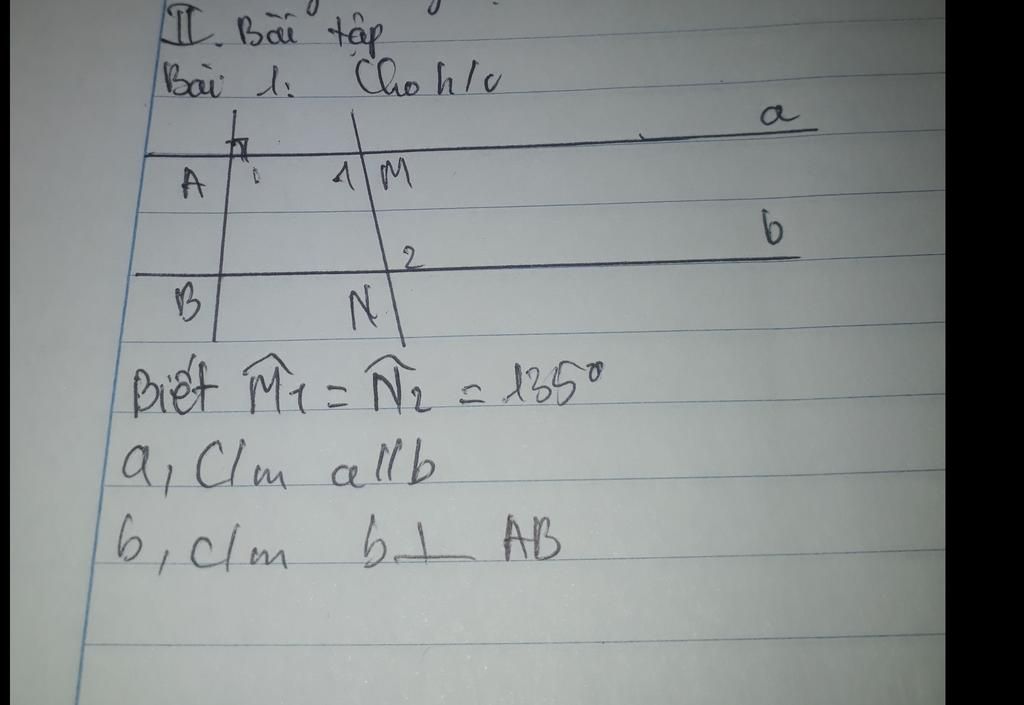 II. Bài tập
Bài 1: Cho h/v
a
A 1 1 M
b
2
B N
Biết M̂1 = N̂2 = 135°
a, C/m a//b
b, c/m b ⊥ AB